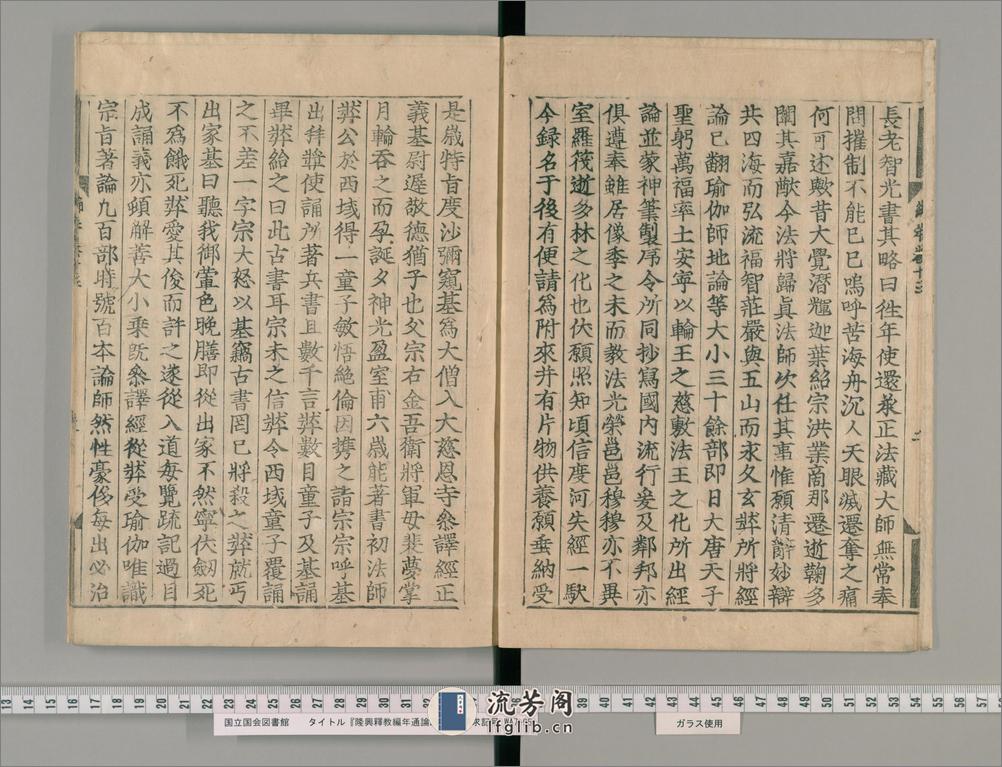 長老智光書其略曰徃年使還承正法藏大師無常奉
問摧制不能已已嗚呼苦海舟沉人天眼滅遷奪之痛
何可述歟昔大覺潛輝迦葉紹宗洪業商那遷逝鞠多
闡其嘉猷今法將歸真法師次任其事惟願清辭妙辯
共四海而弘流福智莊嚴與五山而永久玄奘所將經
論已翻瑜伽師地論等大小三十餘部即日大唐天子
聖躬萬福率土安寧以輪王之慈敷法王之化所出經
論並蒙神筆製序令所同抄寫國內流行爰及鄰邦亦
俱遵奉雖居像季之末而教法光榮邕邕穆穆亦不異
室羅筏逝多林之化也伏願照知頃信度河失經一馱
今録名于後有便請為附來并有片物供養願垂納受
是歲特旨度沙彌窺基為大僧入大慈恩寺叅譯經正
義基尉遲敬德猶子也父宗右金吾衛將軍母裴夢掌
月輪吞之而孕誕夕神光盈室甫六歲能著書初法師
奘公於西域得一童子敏悟絕倫因携之詣宗宗呼基
出拜奘使誦所著兵書且數千言奘數目童子及基誦
畢奘紿之曰此古書耳宗未之信奘令西域童子覆誦
之不差一字宗大怒以基竊古書罔已將殺之奘就丐
出家基曰聽我御葷色晚膳即從出家不然寧伏劒死
不為餓死奘愛其俊而許之遂從入道每覽疏記過目
成誦義亦頓解善大小乘既叅譯經從奘受瑜伽唯識
宗旨著論九百部時號百本論師然性豪侈每出必治
国立国会図書館 タイトル『隆興釋教編年通論
ガラス使用
流芳阁
lfglib.cn